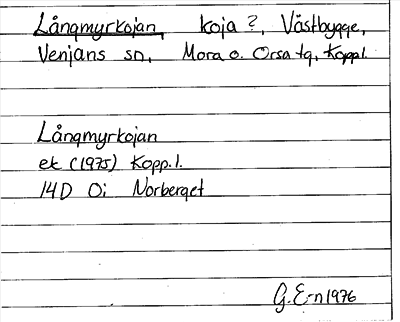 Långmyrkojan, koja ?, Västbygge,
Venjans sn, Mora o. Orsa tg, Koppl.
Långmyrkojan
ek (1975) Kopp.l.
14D Oi Norberget
G. E-n 1976